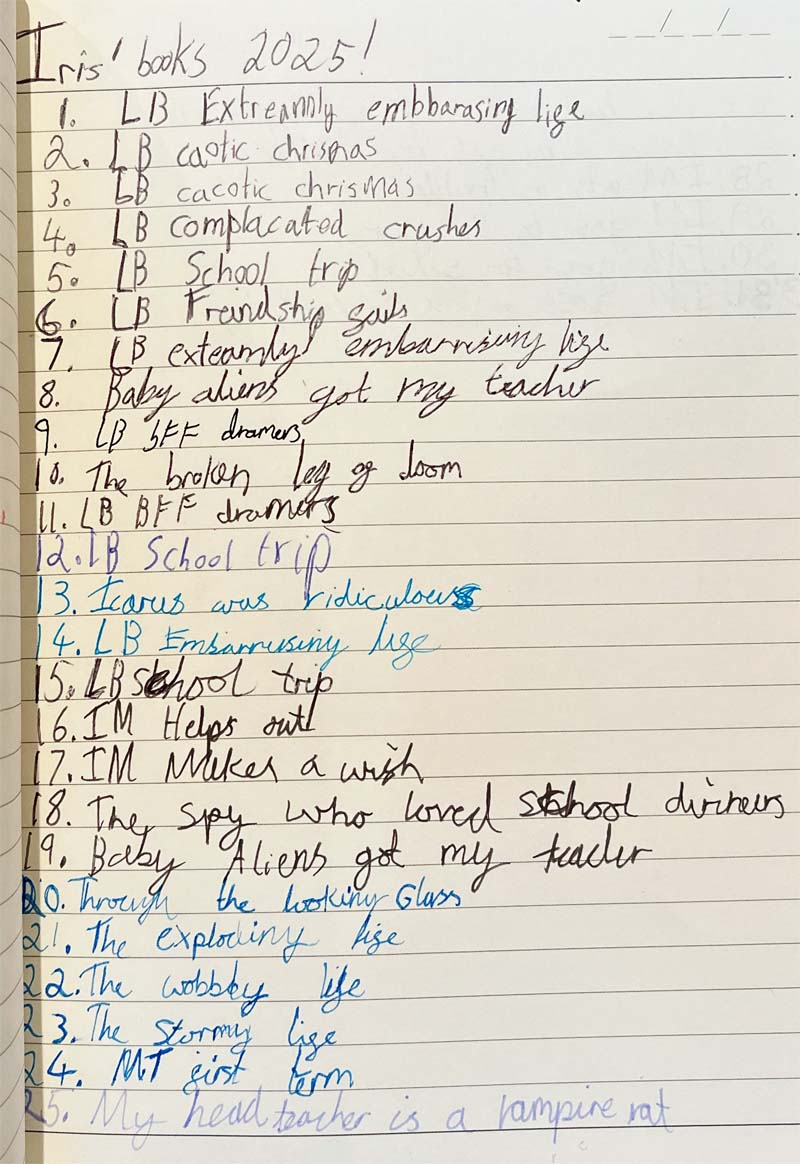 __/__/__
Iris' books 2025!
1. LB Extreamly embbarasing life
2. LB caotic chrismas
3. LB cacotic chrismas
4. LB complacated crushes
5. LB School trip
6. LB Freindship fails
7. LB exteamly embarrising life
8. Baby aliens got my teacher
9. LB BFF dramers
10. The broken leg of doom
11. LB BFF dramers
12. LB School trip
13. Icarus was ridiculous
14. LB Embarrusing life
15. LB School trip
16. IM Helps out
17. IM Makes a wish
18. The spy who loved school dinners
19. Baby Aliens got my teacher
20. Through the looking Glass
21. The exploding life
22. The wobbly life
23. The stormy life
24. MT first term
25. My head teacher is a vampire rat